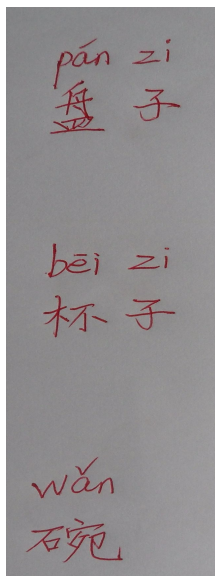 pán zi
盘 子
bēi zi
杯 子
wǎn
碗